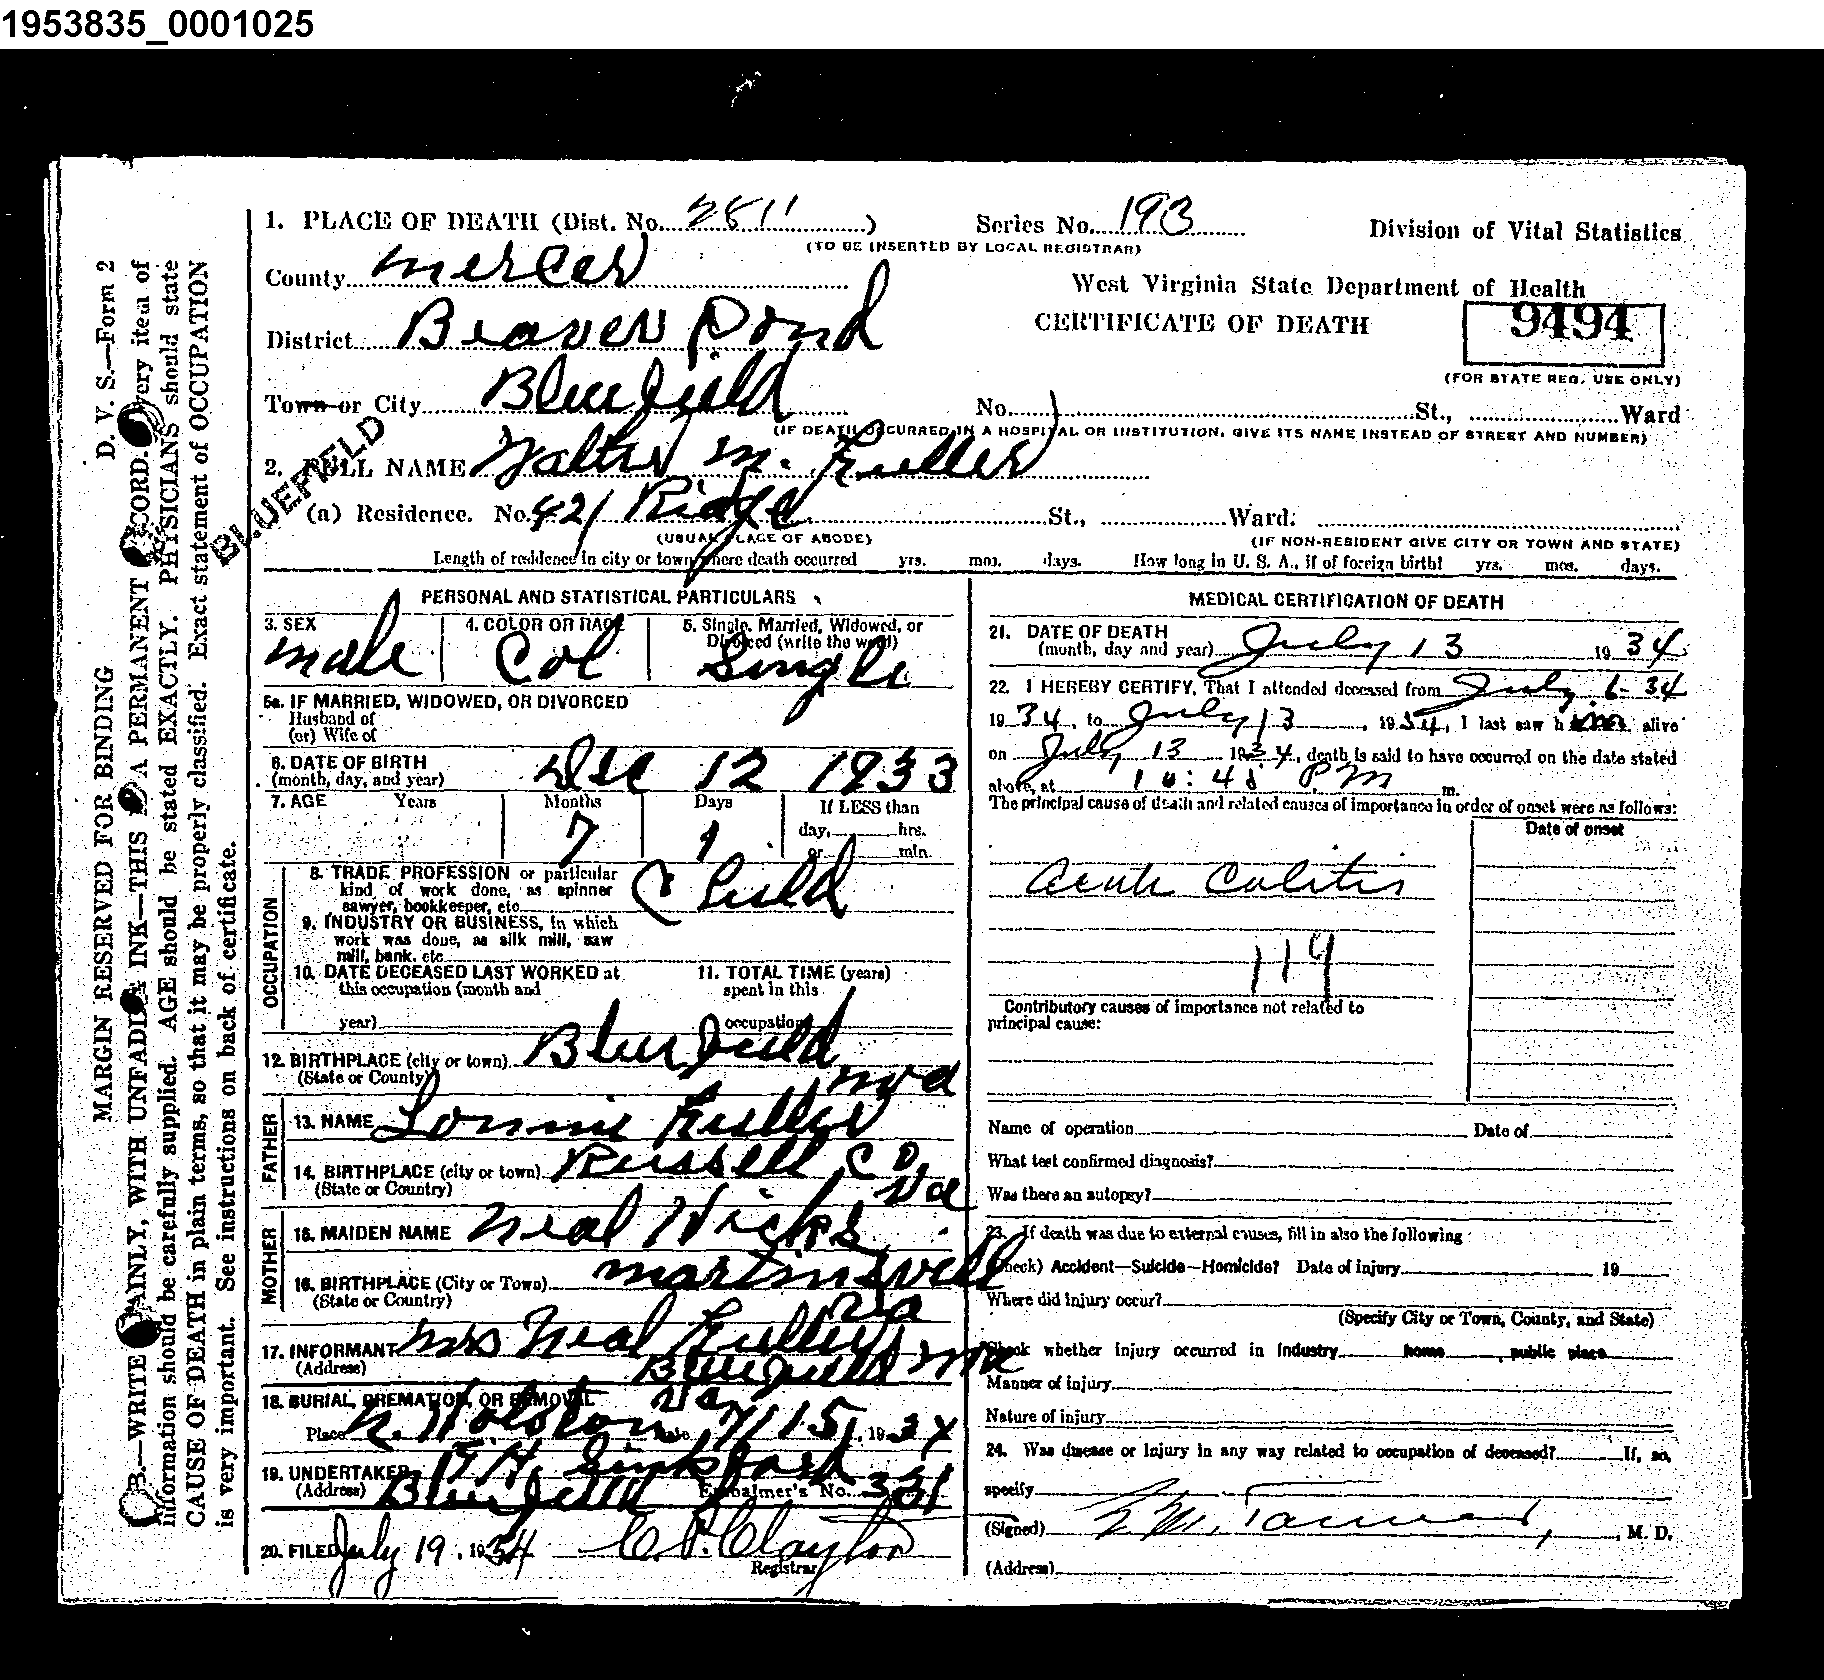 1953835_0001025
1. PLACE OF DEATH (Dist. No. 2811) Series No. 193 Division of Vital Statistics
(TO BE INSERTED BY LOCAL REGISTRAR)
County Mercer West Virginia State Department of Health
CERTIFICATE OF DEATH 9494
District Beaver Pond
(FOR STATE REG. USE ONLY)
Town or City Bluefield No. St., Ward
(IF DEATH OCCURRED IN A HOSPITAL OR INSTITUTION, GIVE ITS NAME INSTEAD OF STREET AND NUMBER)
BLUEFIELD
2. FULL NAME Walter M. Fuller
(a) Residence. No. 421 Ridge St., Ward.
(USUAL PLACE OF ABODE) (IF NON-RESIDENT GIVE CITY OR TOWN AND STATE)
Length of residence in city or town where death occurred yrs. mos. days. How long in U. S. A., if of foreign birth? yrs. mos. days.
PERSONAL AND STATISTICAL PARTICULARS
3. SEX 4. COLOR OR RACE 5. Single, Married, Widowed, or Divorced (write the word)
Male Col Single
5a. IF MARRIED, WIDOWED, OR DIVORCED
Husband of
(or) Wife of
6. DATE OF BIRTH Dec 12 1933
(month, day, and year)
7. AGE Years Months Days If LESS than
7 1 day, hrs.
or min.
OCCUPATION
8. TRADE PROFESSION or particular
kind of work done, as spinner
sawyer, bookkeeper, etc. Child
9. INDUSTRY OR BUSINESS, in which
work was done, as silk mill, saw
mill, bank, etc.
10. DATE DECEASED LAST WORKED at
this occupation (month and
year)
11. TOTAL TIME (years)
spent in this
occupation
12. BIRTHPLACE (city or town) Bluefield
(State or County) W Va
FATHER
13. NAME Lonnie Fuller
14. BIRTHPLACE (city or town) Russell Co,
(State or Country) Va
MOTHER
15. MAIDEN NAME Neal Hicks
16. BIRTHPLACE (City or Town) Martinsvill
(State or Country) Va
17. INFORMANT Mrs Neal Fuller
(Address) Bluefield W Va
18. BURIAL, CREMATION, OR REMOVAL Va
Place N. Holston Date 7/15, 1934
19. UNDERTAKER F. H. Sinkford
(Address) Bluefield Embalmer's No. 331
20. FILED July 19, 1934 C. P. Clayton
Registrar
MEDICAL CERTIFICATION OF DEATH
21. DATE OF DEATH
(month, day and year) July 13 1934
22. I HEREBY CERTIFY, That I attended deceased from July 6-34
1934, to July 13, 1934, I last saw him alive
on July 13 1934, death is said to have occurred on the date stated
above, at P.M m.
The principal cause of death and related causes of importance in order of onset were as follows:
Date of onset
Acute Colitis
119
Contributory causes of importance not related to
principal cause:
Name of operation Date of
What test confirmed diagnosis?
Was there an autopsy?
23. If death was due to external causes, fill in also the following
(Check) Accident—Suicide—Homicide? Date of injury 19
Where did injury occur?
(Specify City or Town, County, and State)
Check whether injury occurred in Industry home, public place
Manner of injury
Nature of injury
24. Was disease or injury in any way related to occupation of deceased? If, so,
specify
(Signed) M. D.
(Address)
D. V. S.—Form 2
MARGIN RESERVED FOR BINDING
B.—WRITE PLAINLY, WITH UNFADING INK—THIS IS A PERMANENT RECORD. Every item of
information should be carefully supplied. AGE should be stated EXACTLY. PHYSICIANS should state
CAUSE OF DEATH in plain terms, so that it may be properly classified. Exact statement of OCCUPATION
is very important. See instructions on back of certificate.